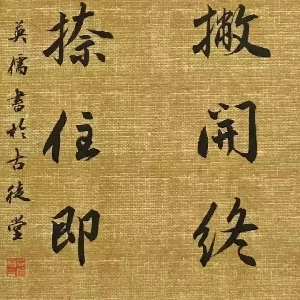 撇開終
捺住即
英儒書於古堂